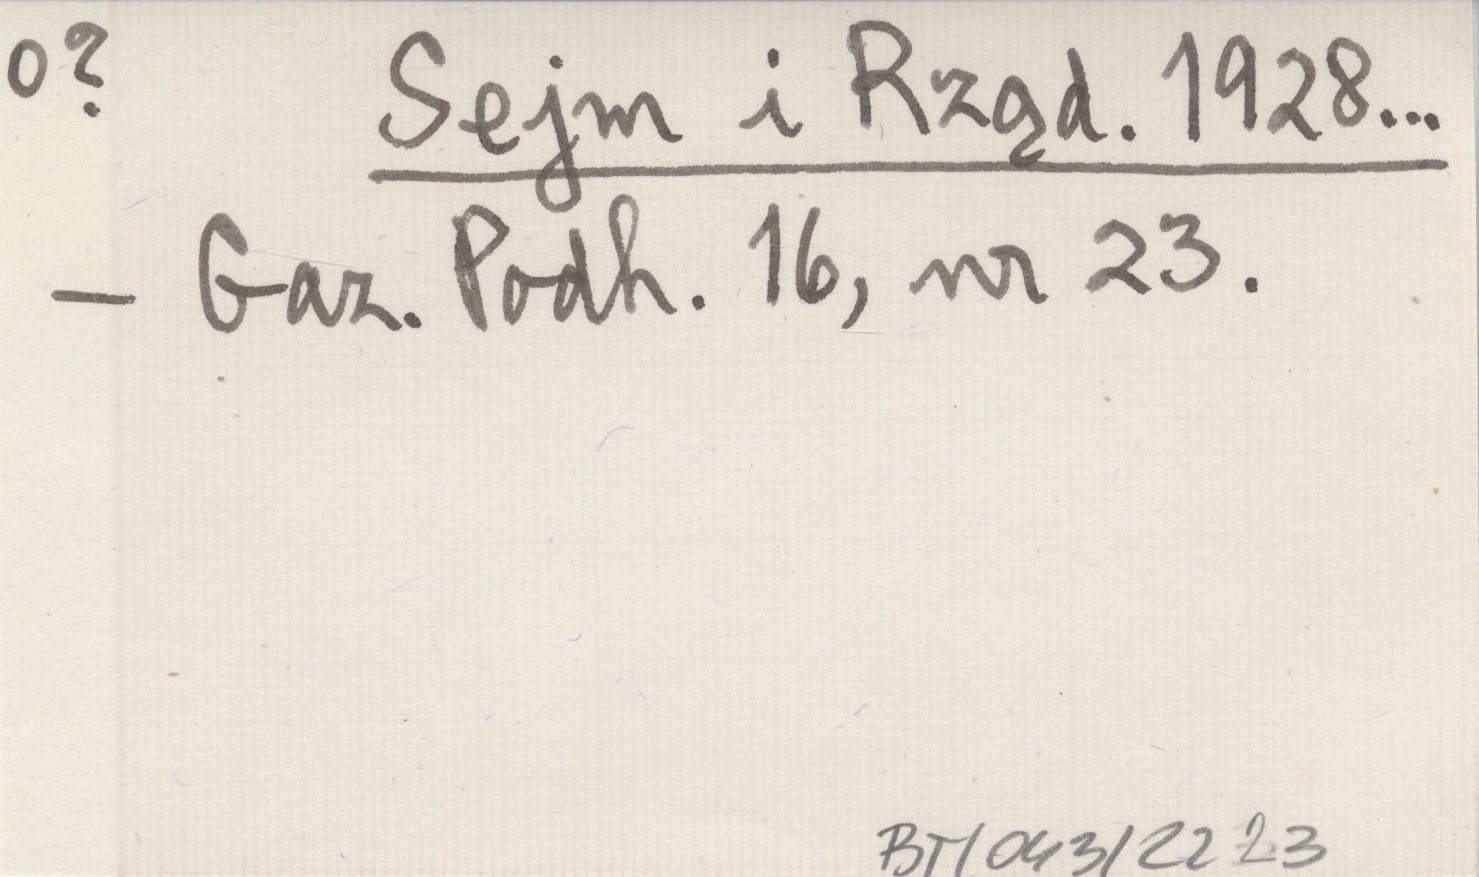 o? Sejm i Rząd. 1928...
— Gaz. Podh. 16, nr 23.
BT/043/2223